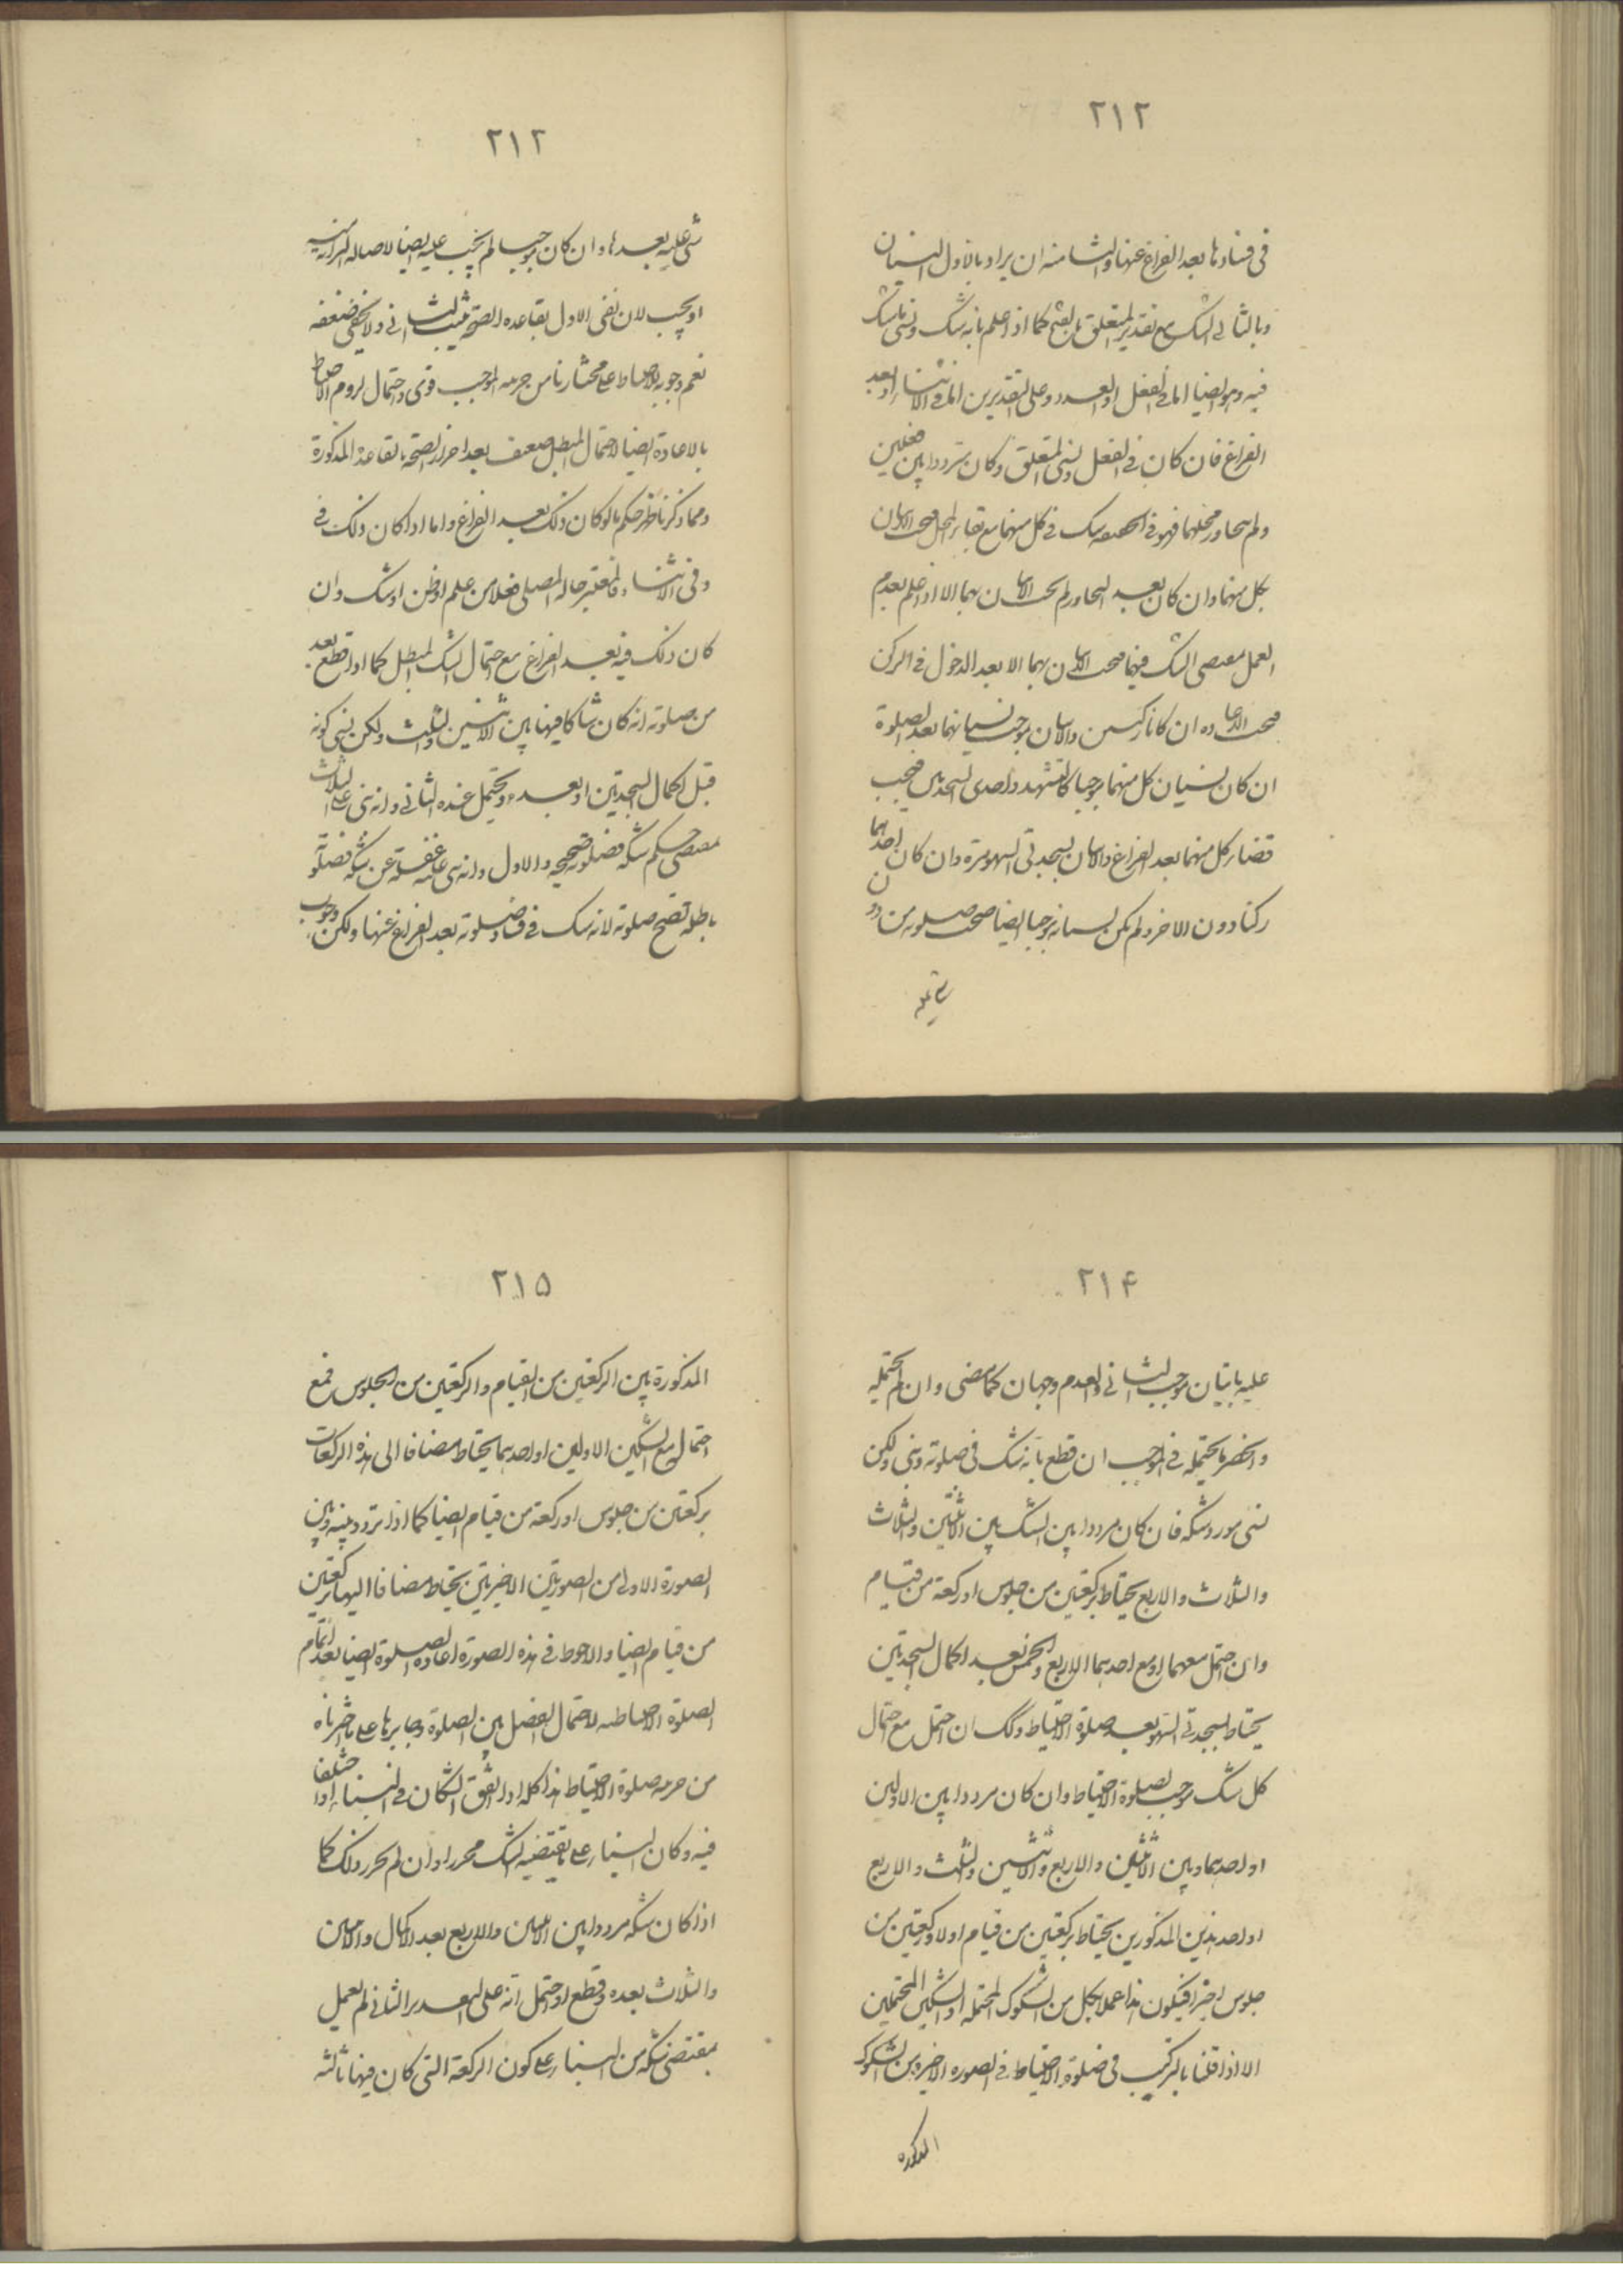 ٢١٢
في فسادها بعد الفراغ عنها والثامنة ان يراد بالاول النسيان
وبالثاني الشك مع تقدير المتعلق بالفتح كما اذا علم بانه شك ونسي ما شك
فيه وهو ايضا اما في الفعل او العدد وعلى التقديرين اما في الاثناء او بعد
الفراغ فان كان في الفعل ونسي المتعلق وكان مترددا بين فعلين
ولم يتجاوز محلهما فهو في الحقيقة شك في كل منهما مع بقاء المحل فيجب الاتيان
بكل منهما وان كان بعد التجاوز لم يجب الاتيان بهما الا اذا علم بعدم
العمل بمقتضى الشك فيهما فيجب الاتيان بهما الا بعد الدخول في الركن
فيجب الاعاده ان كانا ركنين والاتيان بموجب نسيانهما بعد الصلوة
ان كان نسيان كل منهما موجبا كالتشهد واحدى السجدتين فيجب
قضاء كل منهما بعد الفراغ والاتيان بسجدتي السهو مرة وان كان احدهما
ركنا دون الاخر ولم يكن نسيانه موجبا ايضا صحت صلوته من دون
شيء عليه
٢١٢
شيء عليه بعدها وان كان موجبا لم يجب عليه ايضا لاصالة البرائة
او يجب لان نفي الاول بقاعدة الصحة يثبت الثاني ولا يخفى ضعفه
نعم وجوب الاحتياط على مختارنا من جهة الموجب قوي واحتمال لزوم الاحتياط
بالاعادة ايضا لاحتمال المبطل ضعيف بعد احراز الصحة بالقاعدة المذكورة
ومما ذكرنا ظهر حكم ما لو كان ذلك بعد الفراغ واما اذا كان ذلك في
وفي الاثناء فالمعتبر حالة المصلي فعلا من علم او ظن او شك وان
كان ذلك فيه بعد الفراغ مع احتمال الشك المبطل كما اذا قطع بعد
من صلوته انه كان شاكا فيها بين الاثنين والثلث ولكن نسي كونه
قبل اكمال السجدتين او بعده ويحتمل عنده الثاني وانه بنى على الثلاث
بمقتضى حكم شكه فصلوته صحيحه والاول وانه بنى عليه غفلة عن شكه فصلوته
باطله تصح صلوته لانه شك في فساد صلوته بعد الفراغ عنها ولكن وجوب
٢١۴
عليه باتيان موجب الثاني والعدم وجهان كما مضى وان لم يحتمله
وانحصر ما يحتمله في الموجب ان قطع بانه شك في صلوته وبنى ولكن
نسي مورد شكه فان كان مرددا بين الشك بين الاثنين والثلاث
والثلاث والاربع يحتاط بركعتين من جلوس او ركعة من قيام
وان احتمل معهما او مع احدهما الاربع والخمس بعد اكمال السجدتين
يحتاط بسجدتي السهو بعد صلوة الاحتياط وكذلك ان احتمل مع احتمال
كل شك موجب لصلوة الاحتياط وان كان مرددا بين الاولين
او احدهما وبين الاثنين والاربع والاثنين والثلث والاربع
او احد هذين المذكورين يحتاط بركعتين من قيام اولا وركعتين من
جلوس اخيرا فيكون هذا عملا بكل من الشكوك المحتملة او الشكين المحتملين
الا اذا قلنا بالتركيب في صلوة الاحتياط في الصورة الاخيرة من الشكوك
المذكوره
٢١۵
المذكورة بين الركعتين من القيام والركعتين من الجلوس فمع
احتمال مع الشكين الاولين او احدهما يحتاط مضافا الى هذه الركعات
بركعتين من جلوس او ركعة من قيام ايضا كما اذا تردد بينه وبين
الصورة الاولى من الصورتين الاخيرتين يحتاط مضافا اليها بركعتين
من قيام ايضا والاحوط في هذه الصورة اعادة الصلوة ايضا بعد اتمام
الصلوة الاحتياطيه لاحتمال الفصل بين الصلوة وجابرها على ما اخترناه
من جزئية صلوة الاحتياط هذا كله اذا اتفق الشكان في البناء او اختلفا
فيه وكان البناء على ما يقتضيه الشك محرزا وان لم يحرز ذلك كما
اذا كان شكه مرددا بين الاثنين والاربع بعد الاكمال والاثنين
والثلاث بعده وقطع او احتمل انه على التقدير الثاني لم يعمل
بمقتضى شكه من البناء على كون الركعة التي كان فيها ثالثه